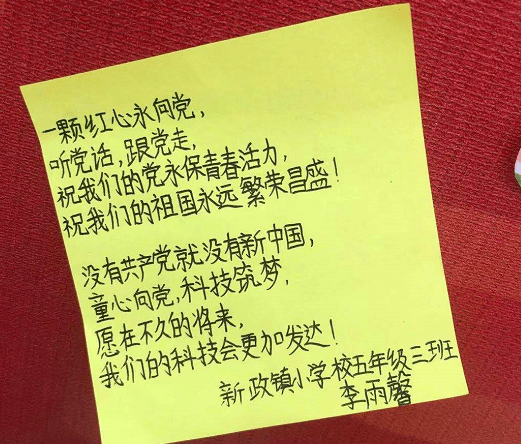 一颗红心永向党，
听党话，跟党走，
祝我们的党永保青春活力，
祝我们的祖国永远繁荣昌盛！
没有共产党就没有新中国，
童心向党，科技筑梦，
愿在不久的将来，
我们的科技会更加发达！
新政镇小学校五年级三班
李雨馨